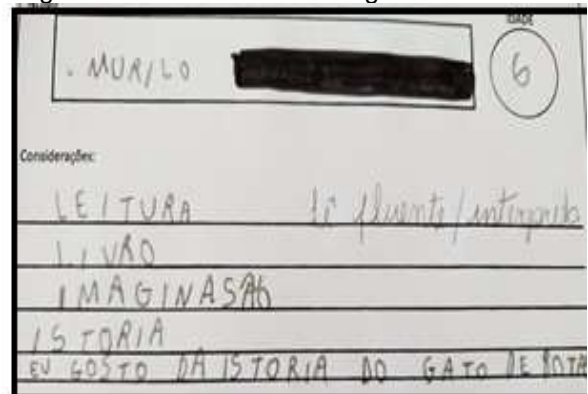 IDADE
. MURILO
6
Considerações:
LEITURA lê fluente/interpreta
LIVRO
IMAGINASÃO
ISTORIA
EU GOSTO DA ISTORIA DO GATO DE BOTA